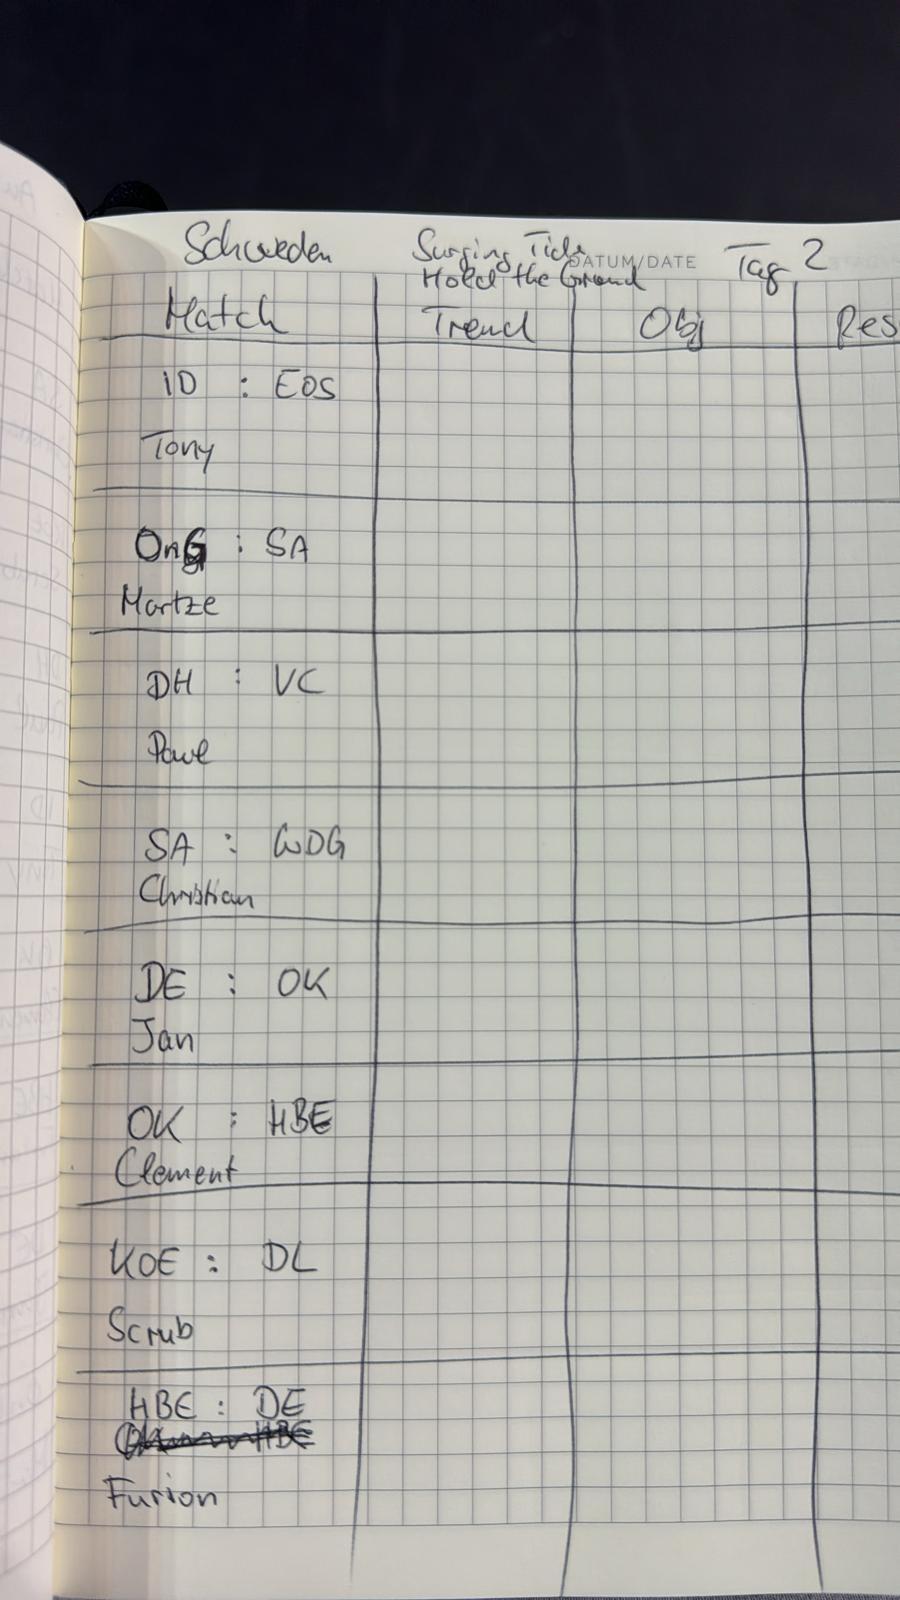 Schweden Surging Tide Tag 2
DATUM/DATE
Hold the Ground
Match Trend Obj Res
ID : EOS
Tony
OnG : SA
Martze
DH : VC
Paul
SA : WDG
Christian
DE : OK
Jan
OK : HBE
Clement
KOE : DL
Scrub
HBE : DE
HBE
Furion